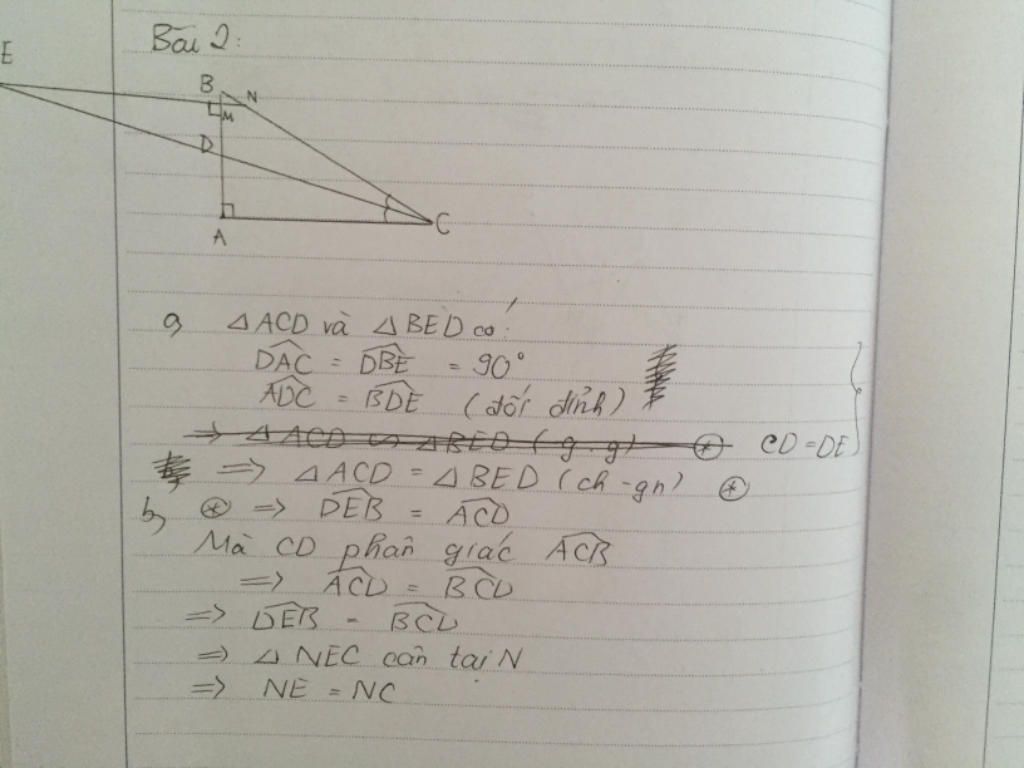 Bài 2:
E
B
N
M
D
A
C
a, △ACD và △BED có:
DAC = DBE = 90°
ADC = BDE (đối đỉnh)
⇒ △ACD ∽ △BED (g.g) ⊛ CD = DE
⇒ △ACD = △BED (ch-gn) ⊛
b, ⊛ ⇒ DEB = ACD
Mà CD phân giác ACB
⇒ ACD = BCD
⇒ DEB = BCD
⇒ △NEC cân tại N
⇒ NE = NC